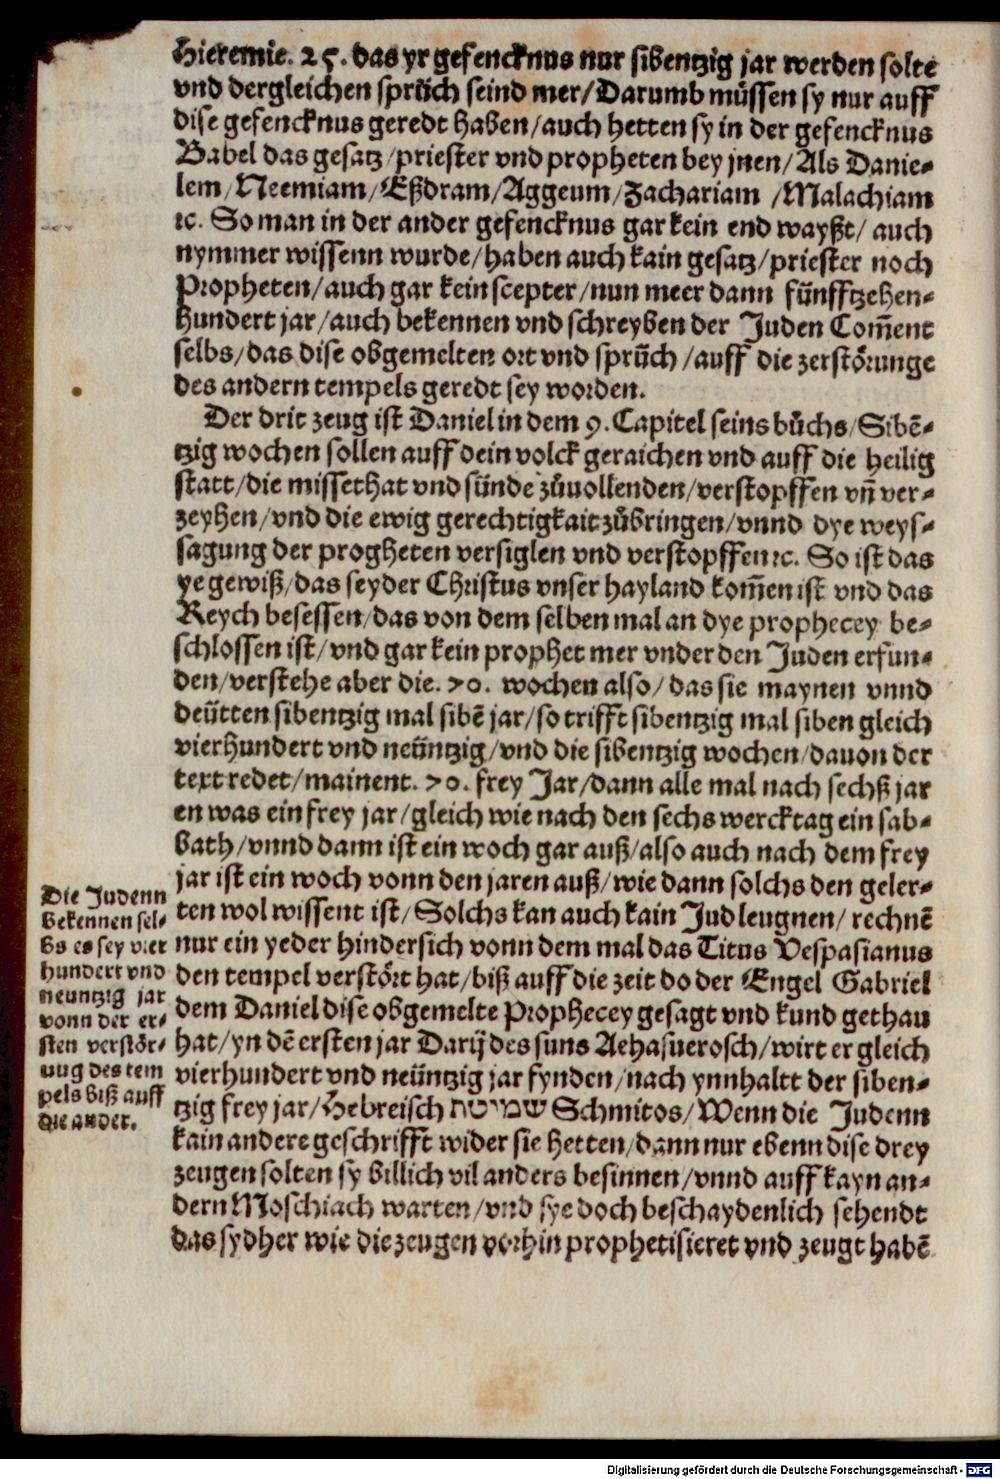 Hieremie. 25. das yr gefencknus nur sibentzig jar werden solte
vnd dergleichen sprüch seind mer/Darumb müssen sy nur auff
dise gefencknus geredt haben/auch hetten sy in der gefencknus
Babel das gesatz/priester vnd propheten bey jnen/Als Danie⸗
lem/Neemiam/Eßdram/Aggeum/Zachariam /Malachiam
ꝛc. So man in der ander gefencknus gar kein end wayßt/ auch
nymmer wissenn wurde/haben auch kain gesatz/priester noch
Propheten/auch gar kein scepter/nun meer dann fünfftzehen⸗
hundert jar/auch bekennen vnd schreyben der Juden Com̄ent
selbs/das dise obgemelten ort vnd sprüch /auff die zerstörunge
des andern tempels geredt sey worden.
Der drit zeug ist Daniel in dem 9. Capitel seins bůchs/Sibē⸗
tzig wochen sollen auff dein volck geraichen vnd auff die heilig
statt/die missethat vnd sünde zůuollenden/verstopffen vn̄ ver⸗
zeyhen/vnd die ewig gerechtigkait zůbringen/vnnd dye weys⸗
sagung der progheten versiglen vnd verstopffen ꝛc. So ist das
ye gewiß/das seyder Christus vnser hayland kom̄en ist vnd das
Reych besessen/das von dem selben mal an dye prophecey be⸗
schlossen ist/vnd gar kein prophet mer vnder den Juden erfun⸗
den/verstehe aber die. 70. wochen also/das sie maynen vnnd
deütten sibentzig mal sibē jar/so trifft sibentzig mal siben gleich
vierhundert vnd neüntzig/vnd die sibentzig wochen/dauon der
text redet/mainent. 70. frey Jar/dann alle mal nach sechß jar
en was ein frey jar/gleich wie nach den sechs wercktag ein sab⸗
bath/vnnd dann ist ein woch gar auß/also auch nach dem frey
jar ist ein woch vonn den jaren auß/wie dann solchs den geler⸗
ten wol wissent ist/Solchs kan auch kain Jud leugnen/ rechnē
nur ein yeder hindersich vonn dem mal das Titus Vespasianus
den tempel verstört hat/biß auff die zeit do der Engel Gabriel
dem Daniel dise obgemelte Prophecey gesagt vnd kund gethau
hat/yn dē ersten jar Darij des suns Aehasuerosch/wirt er gleich
vierhundert vnd neüntzig jar fynden/nach ynnhaltt der siben⸗
tzig frey jar/Hebreisch שמיטת Schmitos/Wenn die Judenn
kain andere geschrifft wider sie hetten/dann nur ebenn dise drey
zeugen solten sy billich vil anders besinnen/vnnd auff kayn an⸗
dern Moschiach warten/vnd sye doch beschaydenlich sehendt
das sydher wie die zeugen vorhin prophetisieret vnd zeugt habē
Die Judenn
bekennen sel⸗
bs es sey vier
hundert vnd
neuntzig jar
vonn der er⸗
sten verstör⸗
uug des tem
pels biß auff
die ander.
Digitalisierung gefördert durch die Deutsche Forschungsgemeinschaft - DFG